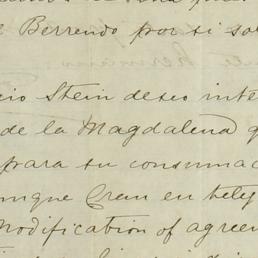 Berrendo por si so
cio Stein deseo inte
de la Magdalena q
para su consumac
unque Cran en teleg
Modification of agreen